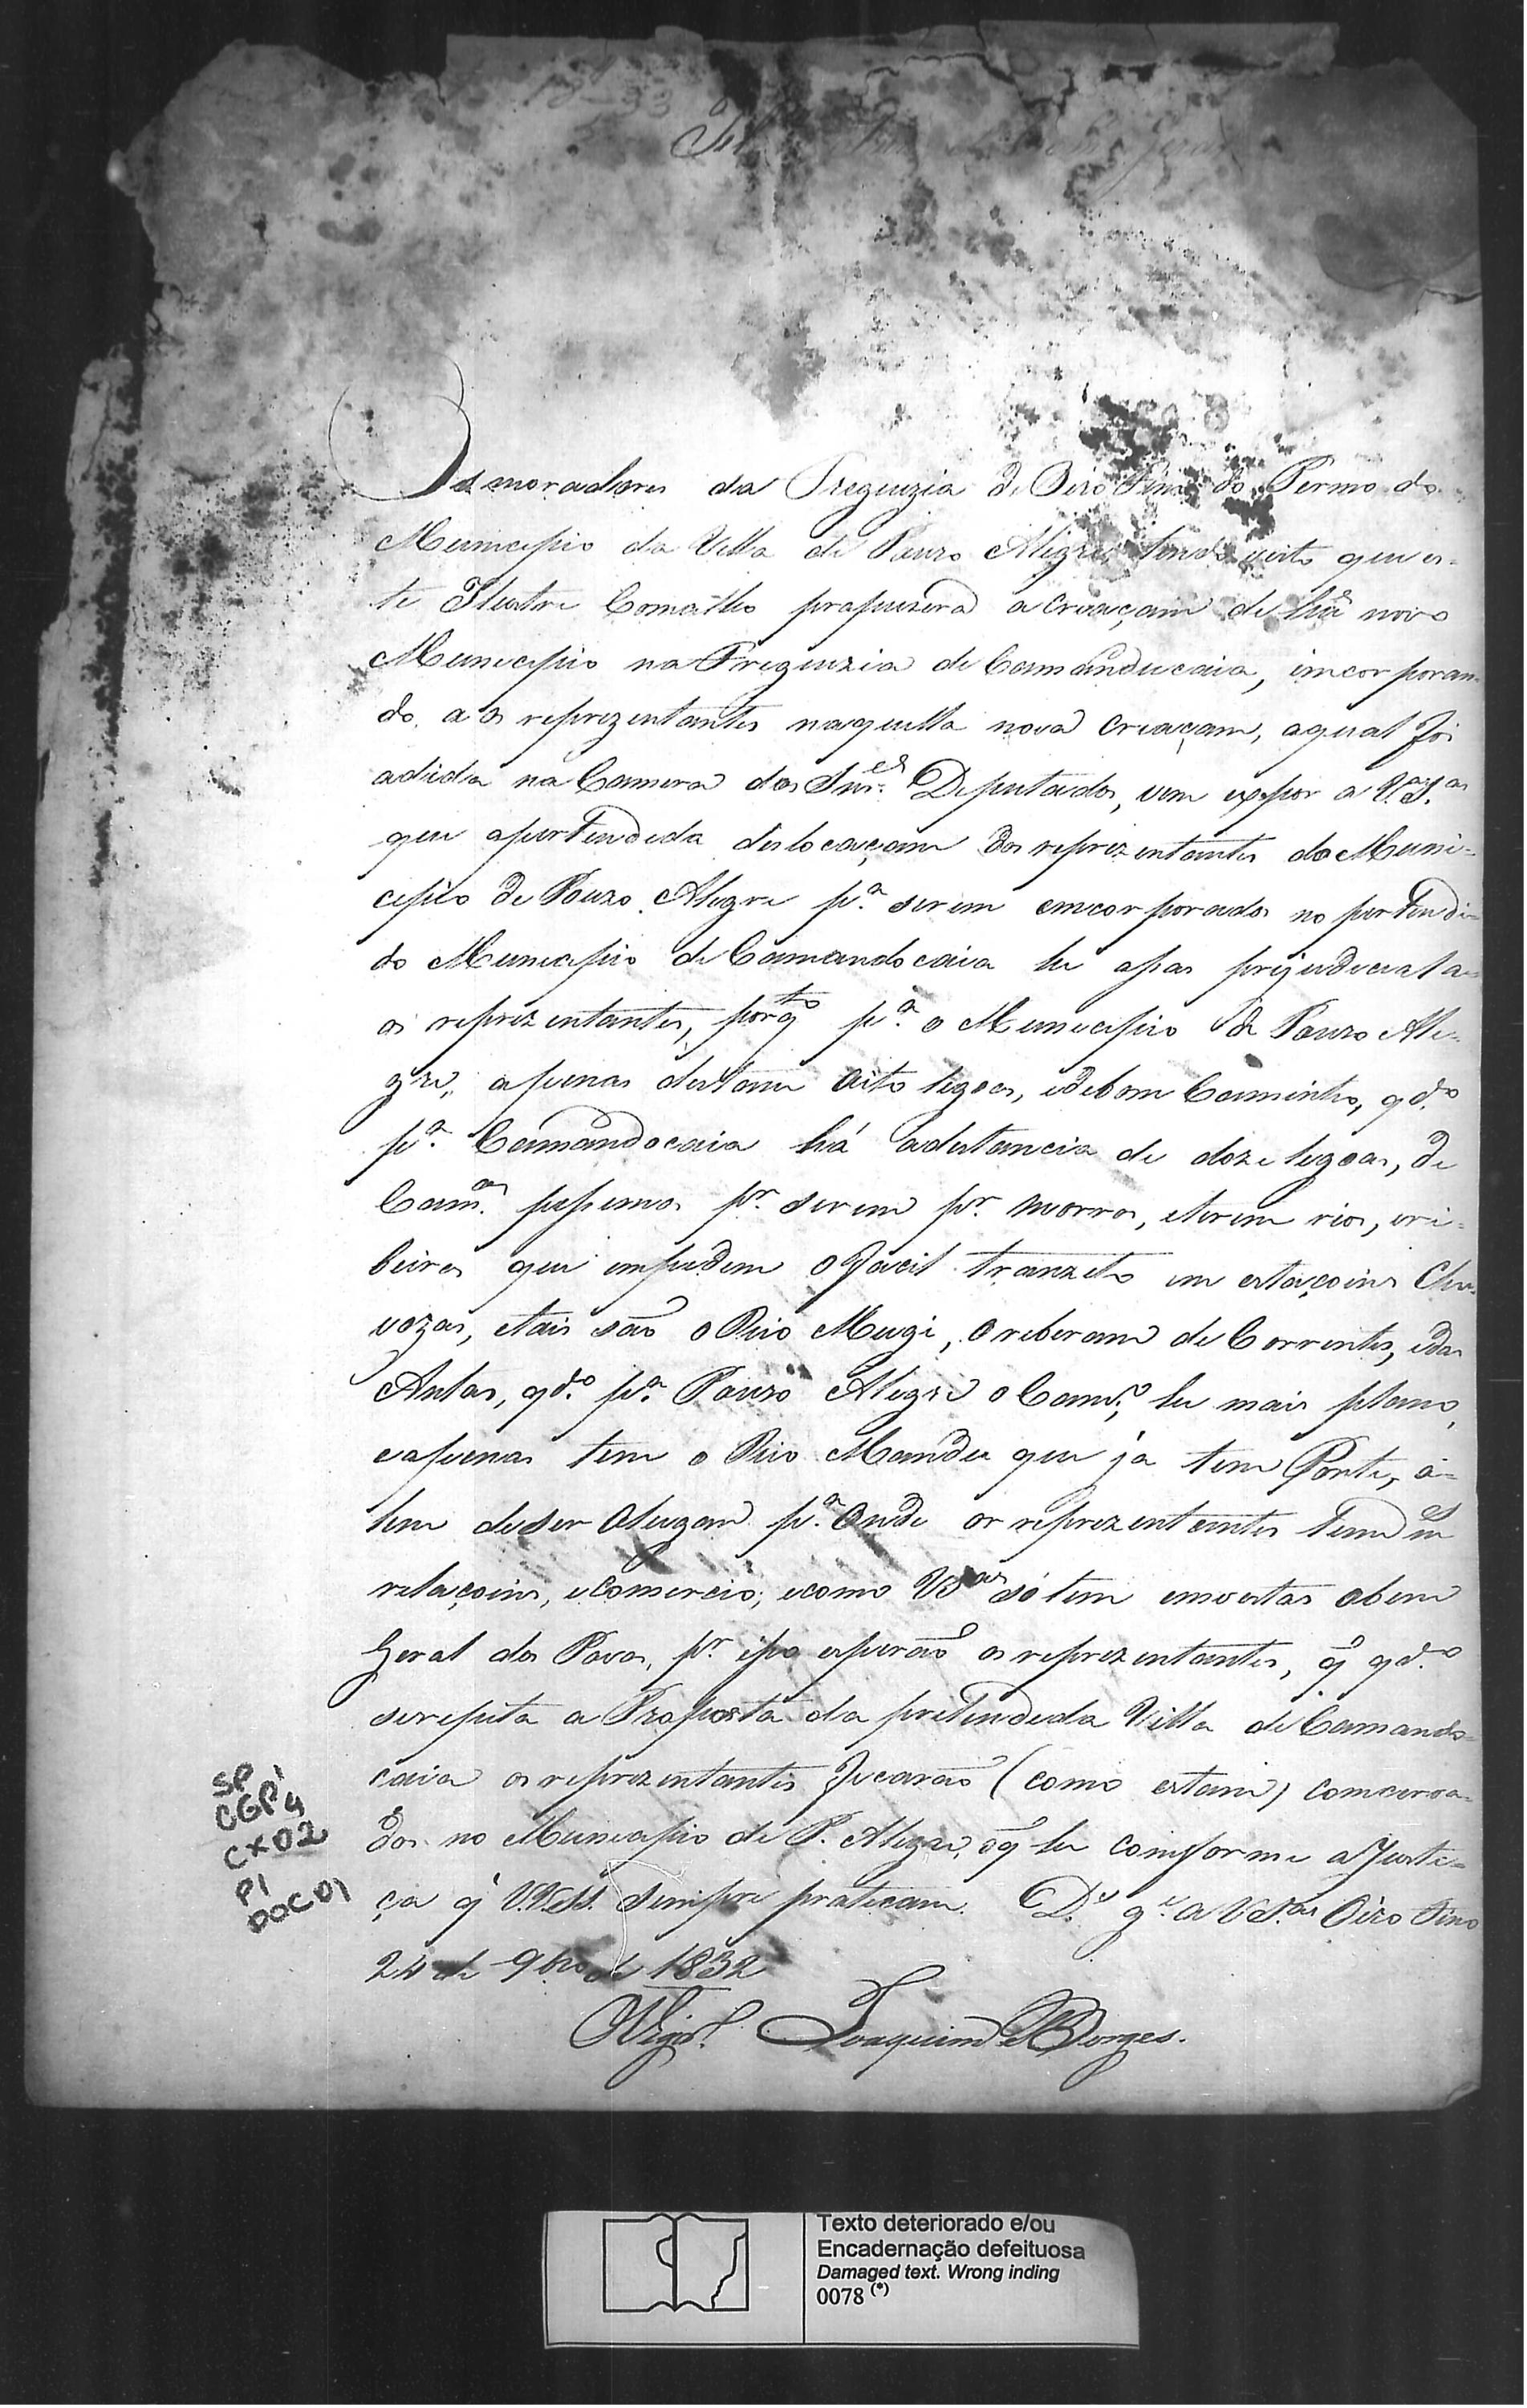 13-33
Os moradores da Freguezia de Oiro Fino do Termo do
Municipio da Villa de Pouzo Alegre, tendo visto que es-
te Illustre Comcelho propuzera a creaçam de hũ novo
Municipio na Freguezia de Camanducaia, imcorporan-
do a os reprezentantes naquella nova creaçam, aqual foi
adida na Camera dos Snr.es Deputados, vem expor a V.as S.as
que apertendida deslocaçam dos reprezentantes do Muni-
cipio de Pouzo Alegre p.a serem emcorporados no pertendi-
do Municipio de Camandocaia he asas prejudicial a-
os reprezentantes, porq.to p.a o Municipio de Pouzo Ale-
gre, apenas distam Oito legoas, edebom Caminho, qd.o
p.a Camandocaia há adistancia de doze legoas, de
Cam.os pessimos p.r serem p.r morros, eterem rios, eri-
beiros que impedem o facil tranzito em estaçoins Chu-
vozas, etais são o Rio Mugi, oreberam de Correntes, edas
Antas, qd.o p.a Pouzo Alegre o Cam.o he mais plano,
eapenas tem o Rio Mandu que já tem Ponte, a-
lem deser olugar p.a onde os reprezentantes tem
relaçoins, eComercio; ecomo VS.as só tem emvistas obem
Geral dos Povos, p.r isso esperão os reprezentantes, q̃ qd.o
serepita a Proposta da pretendida Villa de Camando-
caia os reprezentantes ficarão (como estam) comcerva-
dos no Municipio de P. Alegre, oq̃ he comforme aJusti-
ça q̃ VVSS. sempre praticam. D.s g.e a VS.as Oiro Fino
24 de 9bro de 1832
Vigr.o Joaquim Borges.
SP
CGP1
CX02
P1
DOC01
Texto deteriorado e/ou
Encadernação defeituosa
Damaged text. Wrong inding
0078 (*)